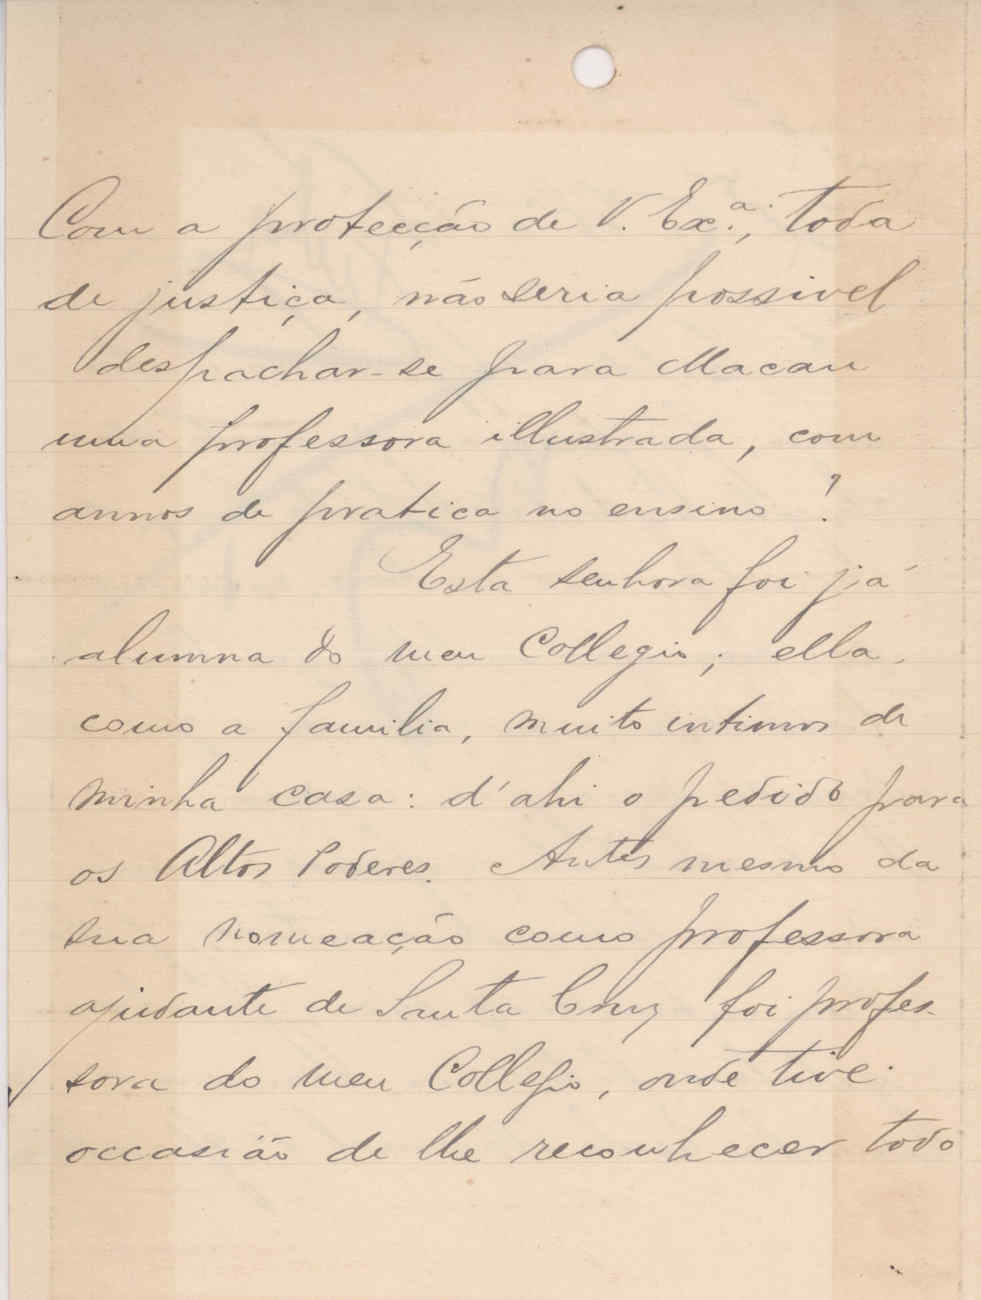 Com a protecção de V. Exª., toda
de justiça, não seria possivel
despachar-se para Macau
uma professora illustrada, com
annos de pratica no ensino?
Esta senhora foi já
alumna do meu Collegio; ella,
como a familia, muito intimos de
minha casa: d'ahi o pedido para
os Altos Poderes. Antes mesmo da
sua nomeação como professora
ajudante de Santa Cruz foi profes-
sora do meu Collegio, onde tive
occasião de lhe reconhecer todo